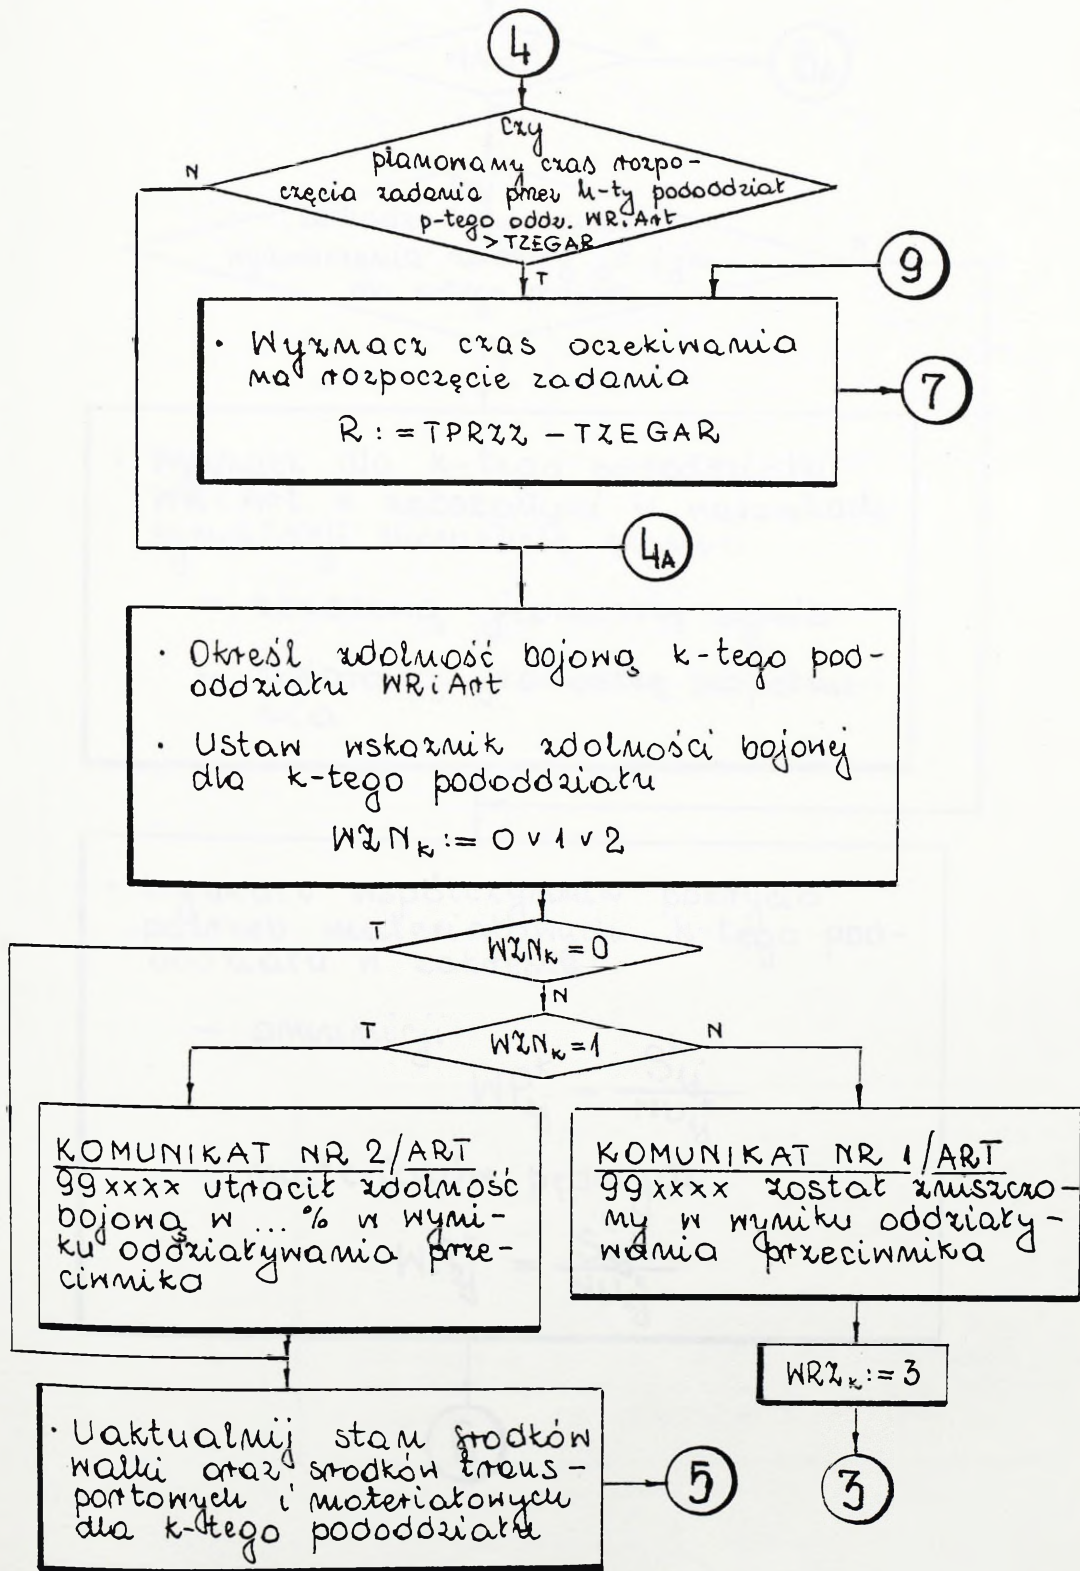 4
Czy
planowany czas rozpo-
częcia zadania przez k-ty pododdział
p-tego oddz. WRiArt
> TZEGAR
N
T
9
· Wyznacz czas oczekiwania
na rozpoczęcie zadania
R := TPRZZ - TZEGAR
7
4A
· Określ zdolność bojową k-tego pod-
oddziału WRiArt
· Ustaw wskaznik zdolności bojowej
dla k-tego pododdziału
WZNk := 0 v 1 v 2
T
WZNk = 0
N
T
WZNk = 1
N
KOMUNIKAT NR 2/ART
99xxxx utracił zdolność
bojową w ... % w wyni-
ku oddziaływania prze-
ciwnika
KOMUNIKAT NR 1/ART
99xxxx został zniszczo-
ny w wyniku oddziały-
wania przeciwnika
WRZk := 3
· Uaktualnij stan środków
walki oraz środków trans-
portowych i materiałowych
dla k-tego pododdziału
5
3